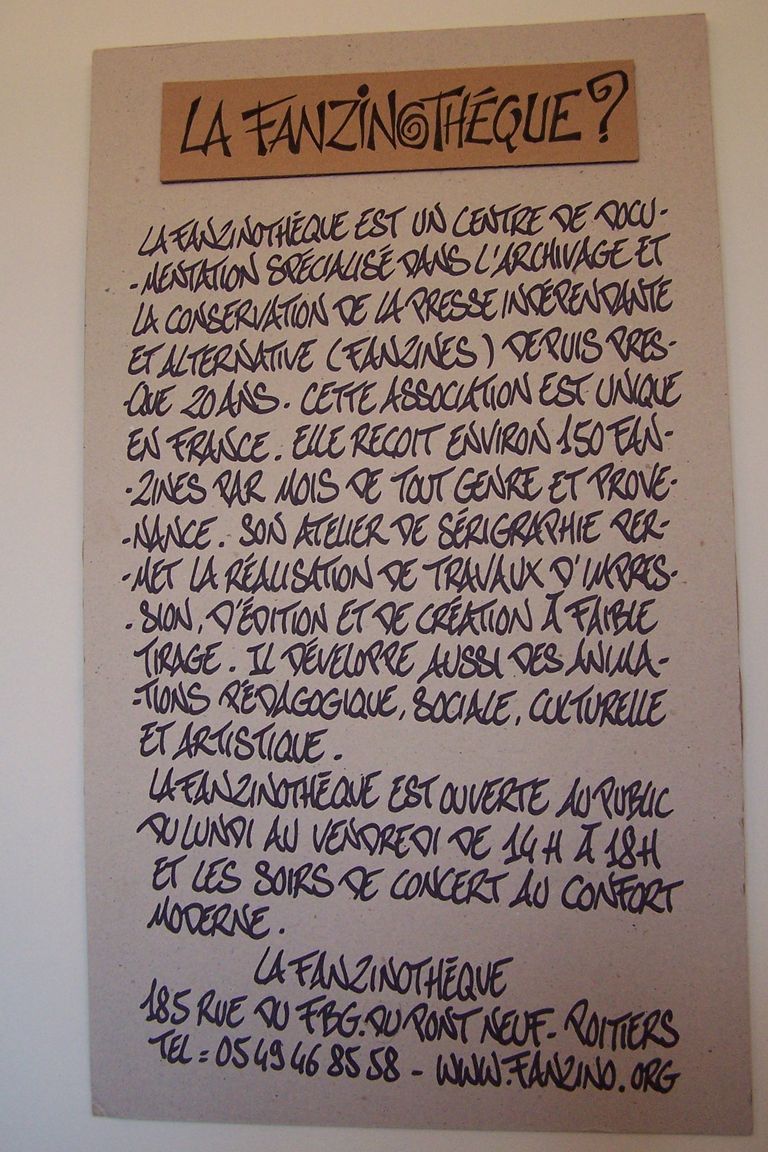 LA FANZINOTHÉQUE ?
LA FANZINOTHÉQUE EST UN CENTRE DE DOCU-
-MENTATION SPÉCIALISÉ DANS L'ARCHIVAGE ET
LA CONSERVATION DE LA PRESSE INDÉPENDANTE
ET ALTERNATIVE (FANZINES) DEPUIS PRES-
-QUE 20 ANS. CETTE ASSOCIATION EST UNIQUE
EN FRANCE. ELLE REÇOIT ENVIRON 150 FAN-
-ZINES PAR MOIS DE TOUT GENRE ET PROVE-
-NANCE. SON ATELIER DE SÉRIGRAPHIE PER-
-MET LA RÉALISATION DE TRAVAUX D'IMPRES-
-SION, D'ÉDITION ET DE CRÉATION À FAIBLE
TIRAGE. IL DÉVELOPPE AUSSI DES ANIMA-
-TIONS PÉDAGOGIQUE, SOCIALE, CULTURELLE
ET ARTISTIQUE.
LA FANZINOTHÉQUE EST OUVERTE AU PUBLIC
DU LUNDI AU VENDREDI DE 14 H À 18 H
ET LES SOIRS DE CONCERT AU CONFORT
MODERNE.
LA FANZINOTHÉQUE
185 RUE DU FBG. DU PONT NEUF - POITIERS
TEL = 05 49 46 85 58 - WWW.FANZINO.ORG